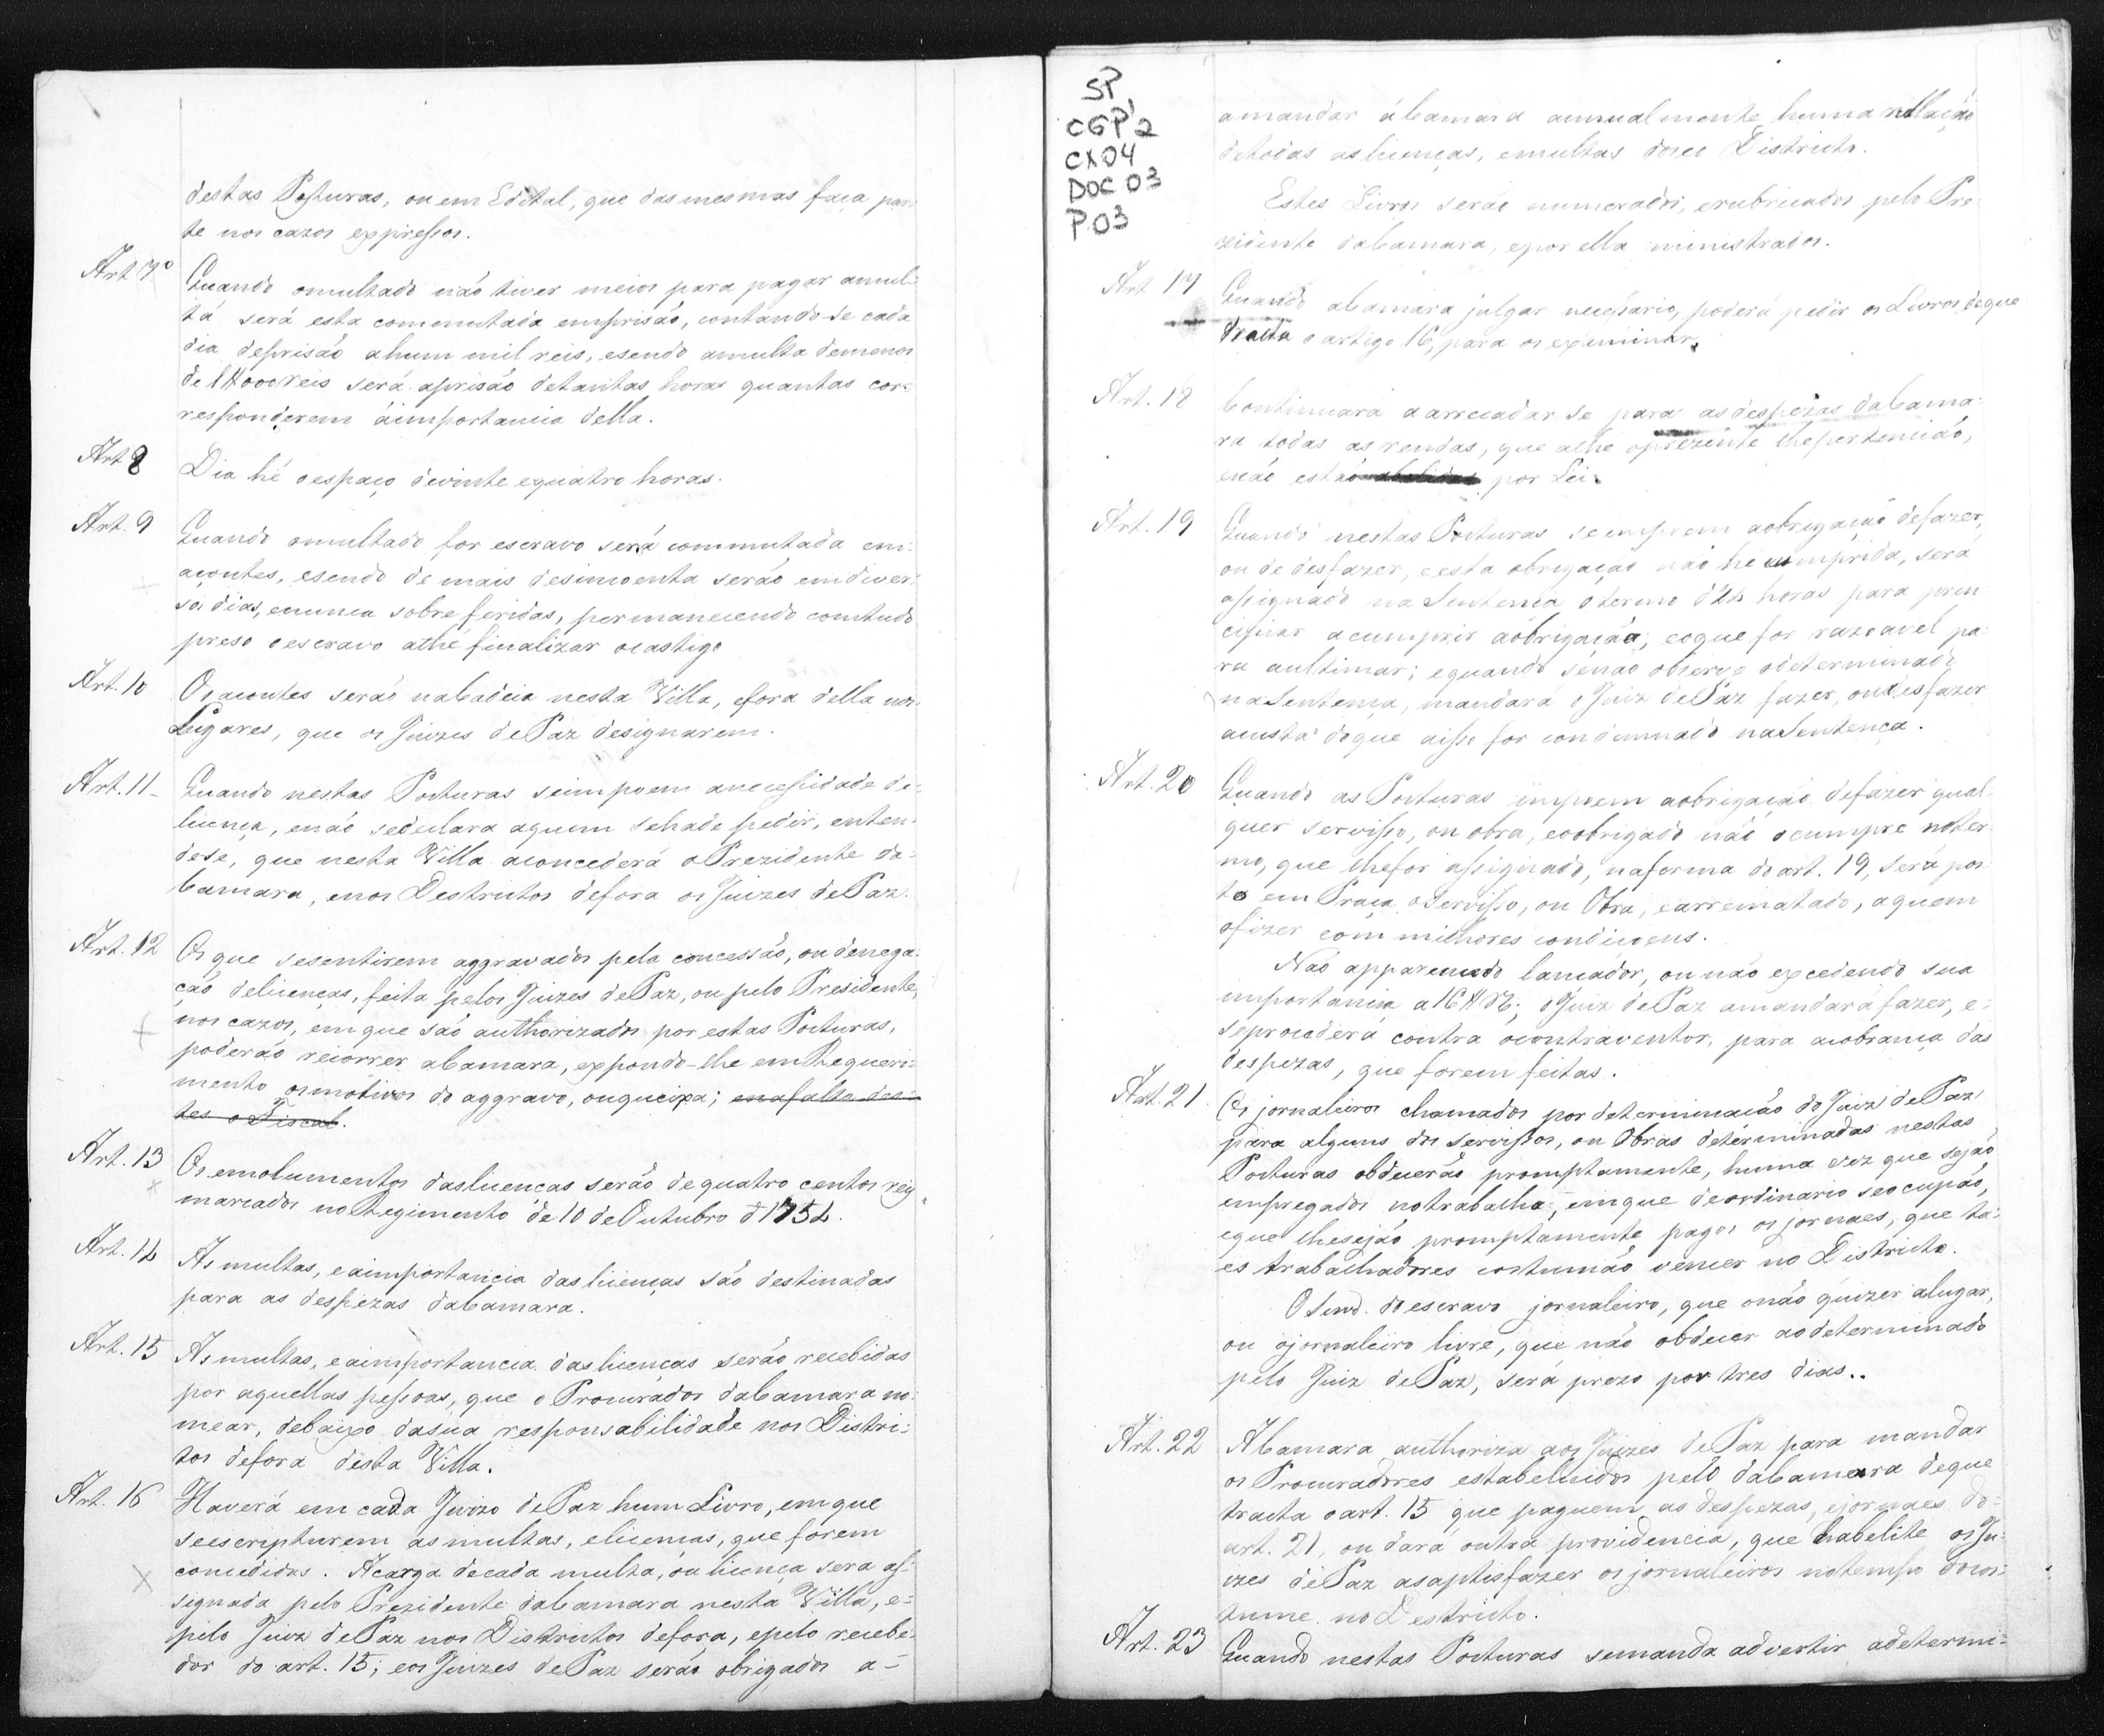 destas Posturas, ou em Edital, que das mesmas faça par-
te nos cazos expressos.
Art 7º Quando omultado não tiver meios para pagar amul-
ta será esta commutada emprisão, contando-se cada
dia deprisão ahum mil reis, esendo amulta demenos
de 1#000 reis será aprisão detantas horas quantas cor-
responderem áimportancia della.
Art 8 Dia hé oespaço devinte equatro horas.
Art. 9 Quando omultado for escravo será commutada em
açoutes, esendo de mais desincoenta serão emdiver-
sos dias, enunca sobre feridas, permanecendo comtudo
preso oescravo athé finalizar ocastigo
Art. 10 Os açoutes serão naCadeia nesta Villa, efora della nos
Lugares, que os Juizes dePaz designarem.
Art. 11 Quando nestas Posturas seimpoem anecessidade de-
licença, enão sedeclara aquem sehade pedir, enten-
dese, que nesta Villa aconcederá oPrezidente da-
Camara, enos Destrictos defora os Juizes dePaz.
Art. 12 Os que sesentirem aggravados pela concessão, ou denega-
ção delicenças, feita pelos Juizes dePaz, ou pelo Presidente,
nos cazos, emque são authorizados por estas Posturas,
poderão recorrer aCamara, expondo-lhe emRequeri-
mento osmotivos do aggravo, ouqueixa; enafalta des-
tes o Fiscal.
Art. 13 Os emolumentos daslicenças serão dequatro centos reis
marcados noRegimento de 10 deOutubro d 1754.
Art. 14 As multas, eaimportancia das licenças são destinadas
para as despezas daCamara.
Art. 15 As multas, eaimportancia daslicenças serão recebidas
por aquellas pessoas, que o Procurador daCamara no-
mear, debaixo dasua responsabilidade nos Distri-
tos defora desta Villa.
Art. 16 Haverá em cada Juizo dePaz hum Livro, emque
seescripturem asmultas, elicenças, que forem
concedidas. Acarga decada multa, ou licença sera as-
signada pelo Prezidente daCamara nesta Villa, e-
pelo Juiz dePaz nos Districtos defora, epelo recebe-
dor do art. 15; eos Juizes dePaz serão obrigados a-
SP,
CGP2
CX04
DOC 03
P.03
amandar áCamara annualmente huma rellação
detodas aslicenças, emultas doseo Districto.
Estes Livros serão numerados, erubricados pelo Pre-
zidente daCamara, epor ella ministrados.
Art 17 Quando aCamara julgar necessario, poderá pedir os Livros, deque
tracta o artigo 16, para os examinar.
Art. 18 Continuará aarrecadar se para as despezas daCama-
ra todas as rendas, que athe oprezente lhepertencião,
enão estão abolidas por Lei.
Art. 19 Quando nestas Posturas seimpoem aobrigação defazer,
ou de desfazer, eesta obrigação não he cumprida, será
assignado naSentença otermo d'24 horas para prin
cipiar acumprir aobrigação, eoque for razoavel pa-
ra aultimar; equando senão observe odeterminado
naSentença, mandará oJuiz dePaz fazer, oudesfazer
acusta doque aisso for condemnado naSentença.
Art. 20 Quando as Posturas impoem aobrigação defazer qual-
quer servisso, ou obra, eoobrigado não ocumpre noter-
mo, que lhefor assignado, naforma doart. 19, será pos-
to em Praça oServisso, ou Obra, earrematado, aquem
ofizer com milhores condicoens.
Não apparecendo lançador, ou não excedendo sua
importancia a 16#Rs; oJuiz dePaz amandará fazer, e-
seprocederá contra ocontraventor, para acobrança das
despezas, que forem feitas.
Art. 21. Os jornaleiros chamados por determinação doJuiz dePaz
para alguns dos servissos, ou Obras determinadas nestas
Posturas obdecerão promptamente, huma vez que sejão
empregados notrabalho, emque deordinario seocupão,
eque lhesejão promptamente pagos os jornaes, que ta-
es trabalhadores costumão vencer no Districto.
OSenr. doescravo jornaleiro, que onão quizer alugar,
ou ojornaleiro livre, que não obdecer aodeterminado
pelo Juiz dePaz, será prezo por tres dias..
Art. 22 ACamara authoriza aos Juizes dePaz para mandar
os Procuradores estabelecidos pelo daCamara deque
tracta oart. 15 que paguem as despezas, ejornaes do-
art. 21, ou dará outra providencia, que habelite os Ju-
izes dePaz asaptisfazer os jornaleiros notempo docos-
tume no Destricto.
Art. 23 Quando nestas Posturas semanda advertir adetermi-